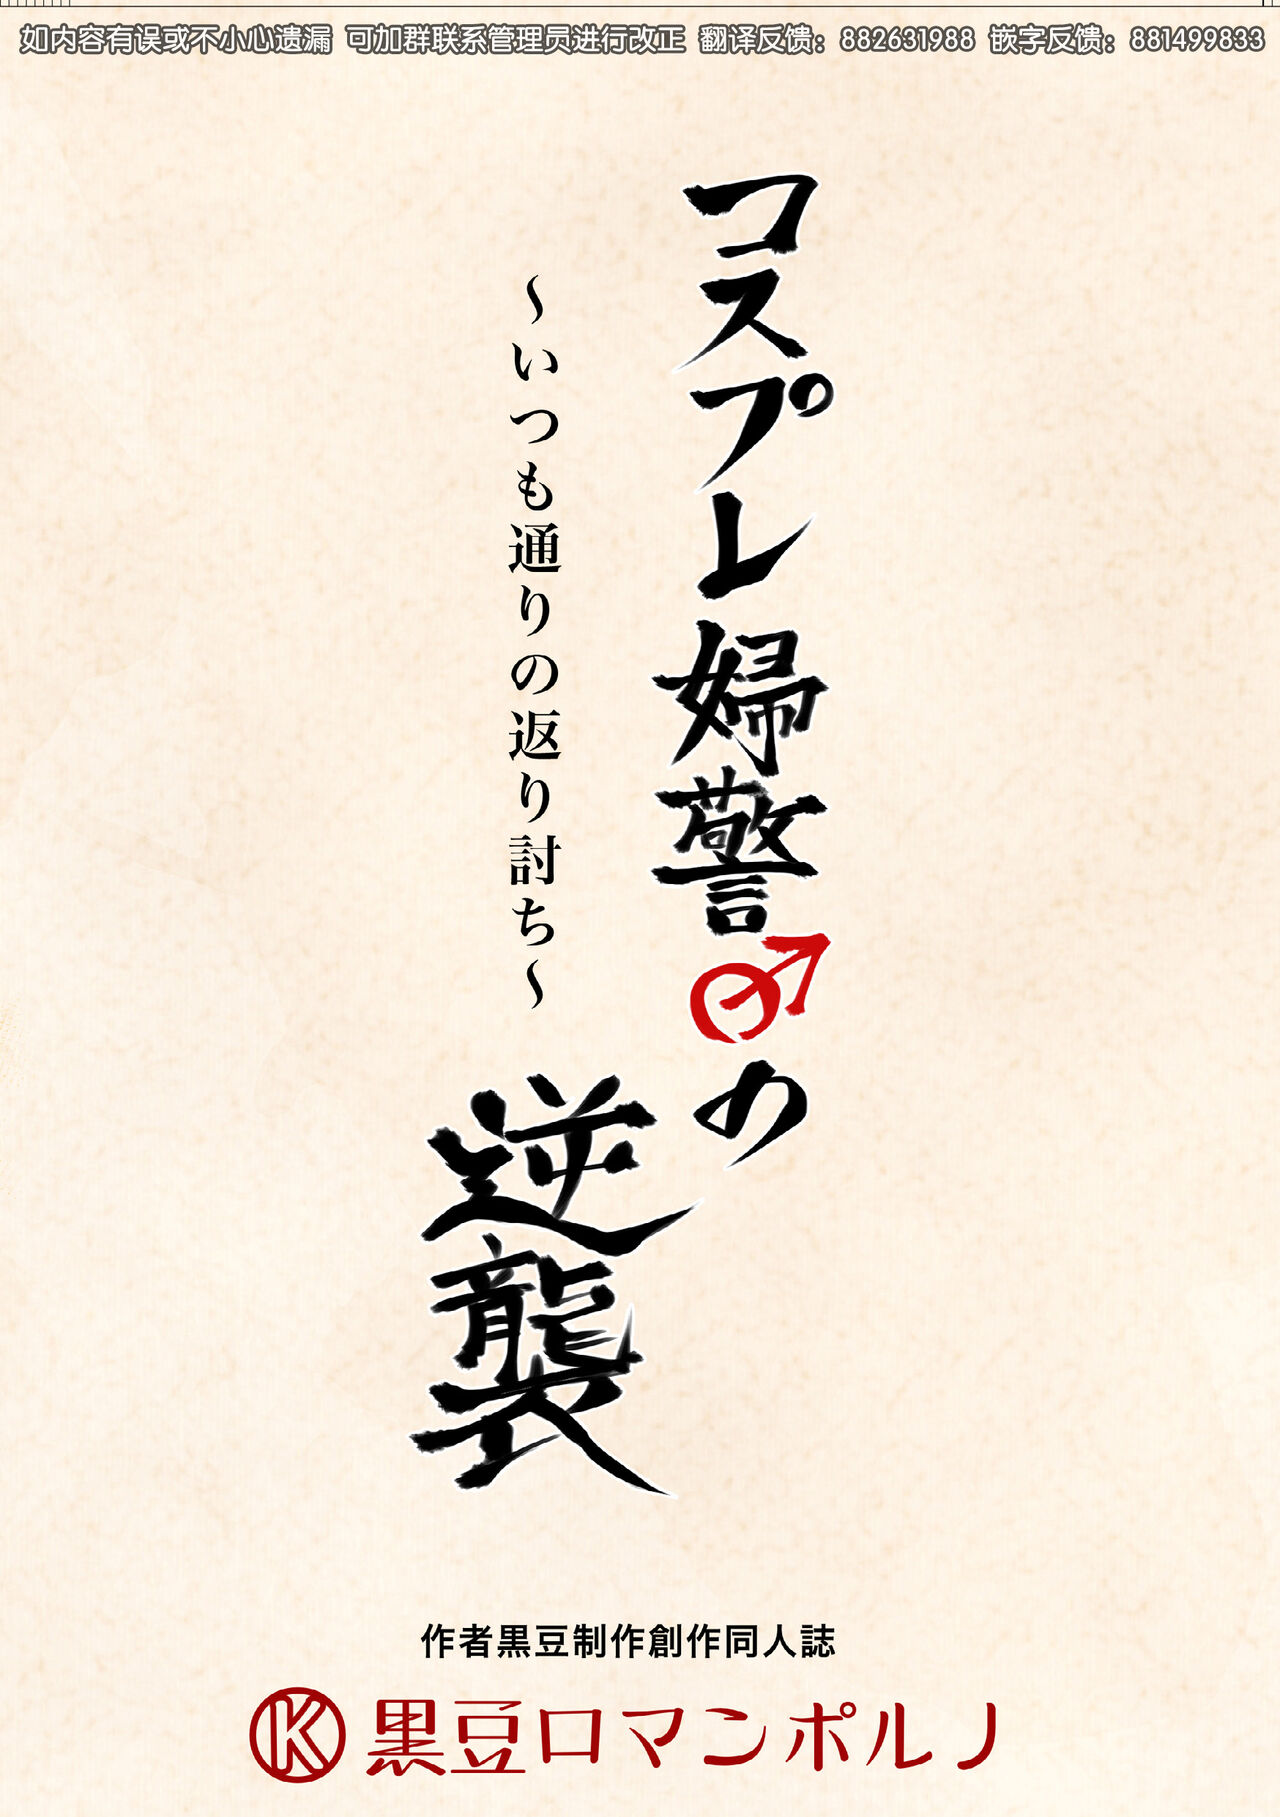 如内容有误或不小心遗漏 可加群联系管理员进行改正 翻译反馈：882631988 嵌字反馈：881499833
コスプレ婦警♂の
～いつも通りの返り討ち～
逆襲
作者黒豆制作創作同人誌
K 黒豆ロマンポルノ